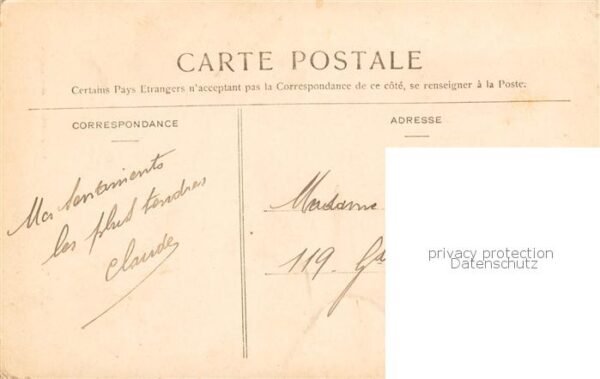 CARTE POSTALE
Certains Pays Etrangers n'acceptant pas la Correspondance de ce côté, se renseigner à la Poste.
CORRESPONDANCE
Mes sentiments
les plus tendres
Claude
ADRESSE
Madame
119. Gd
privacy protection
Datenschutz